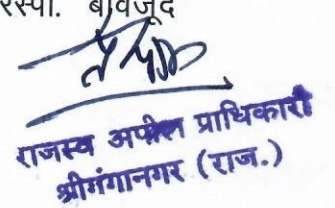 रेस्पो. बावजूद
राजस्व अपील प्राधिकारी
श्रीगंगानगर (राज.)